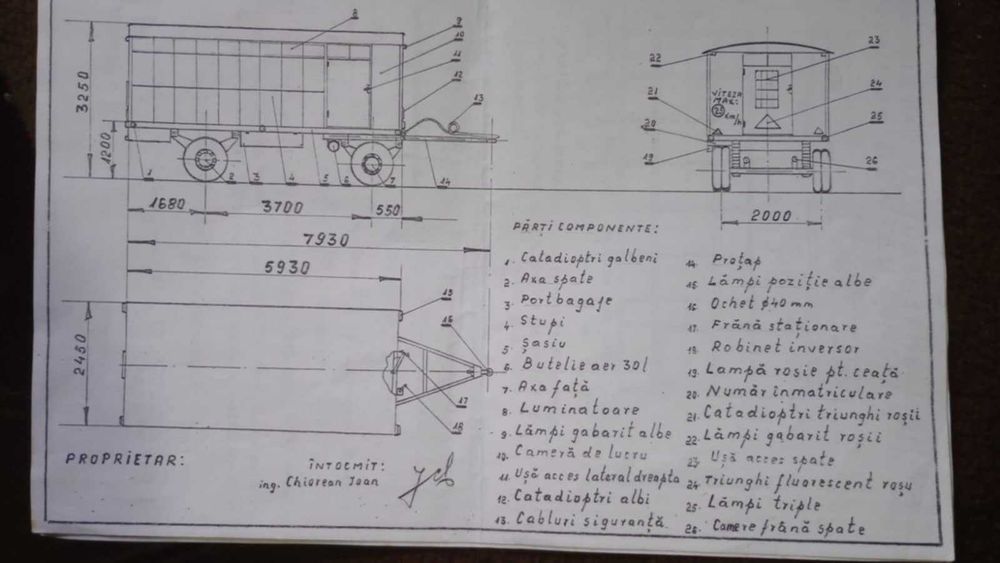 8
9
10
11
12
13
3250
1200
1
2
3
4
5
6
7
14
1680
3700
550
7930
5930
2450
15
16
17
18
22
23
24
25
21
20
19
26
VITEZA
MAX:
25
km/h
2000
PROPRIETAR:
ÎNTOCMIT:
ing. Chiorean Ioan
PĂRȚI COMPONENTE:
1. Catadioptri galbeni
2. Axa spate
3. Portbagaje
4. Stupi
5. Șasiu
6. Butelie aer 30l
7. Axa față
8. Luminatoare
9. Lămpi gabarit albe
10. Cameră de lucru
11. Ușă acces lateral dreapta
12. Catadioptri albi
13. Cabluri siguranță
14. Proțap
15. Lămpi poziție albe
16. Ochet ϕ40 mm
17. Frână staționare
18. Robinet inversor
19. Lampă roșie pt. ceață
20. Număr înmatriculare
21. Catadioptri triunghi roșii
22. Lămpi gabarit roșii
23. Ușă acces spate
24. Triunghi fluorescent roșu
25. Lămpi triple
26. Camere frână spate